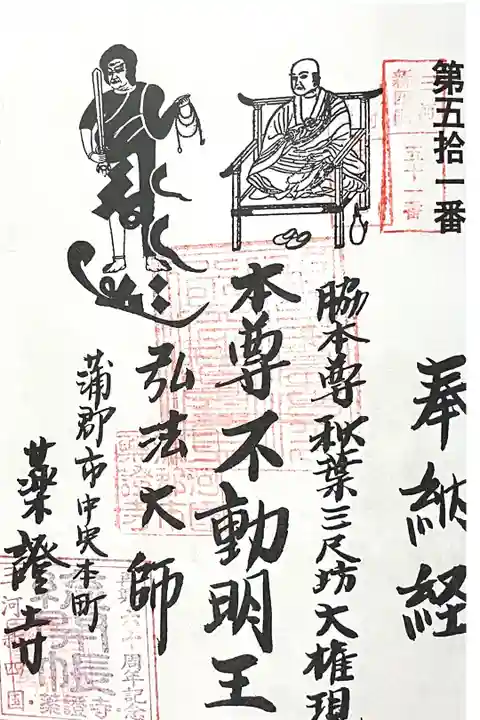 第五拾一番
奉納経
脇本尊秋葉三尺坊大権現
本尊不動明王
弘法大師
蒲郡市中央本町
薬證寺
三河
新四国
五十一番
開帳
六十周年記念
三河新四国
薬證寺